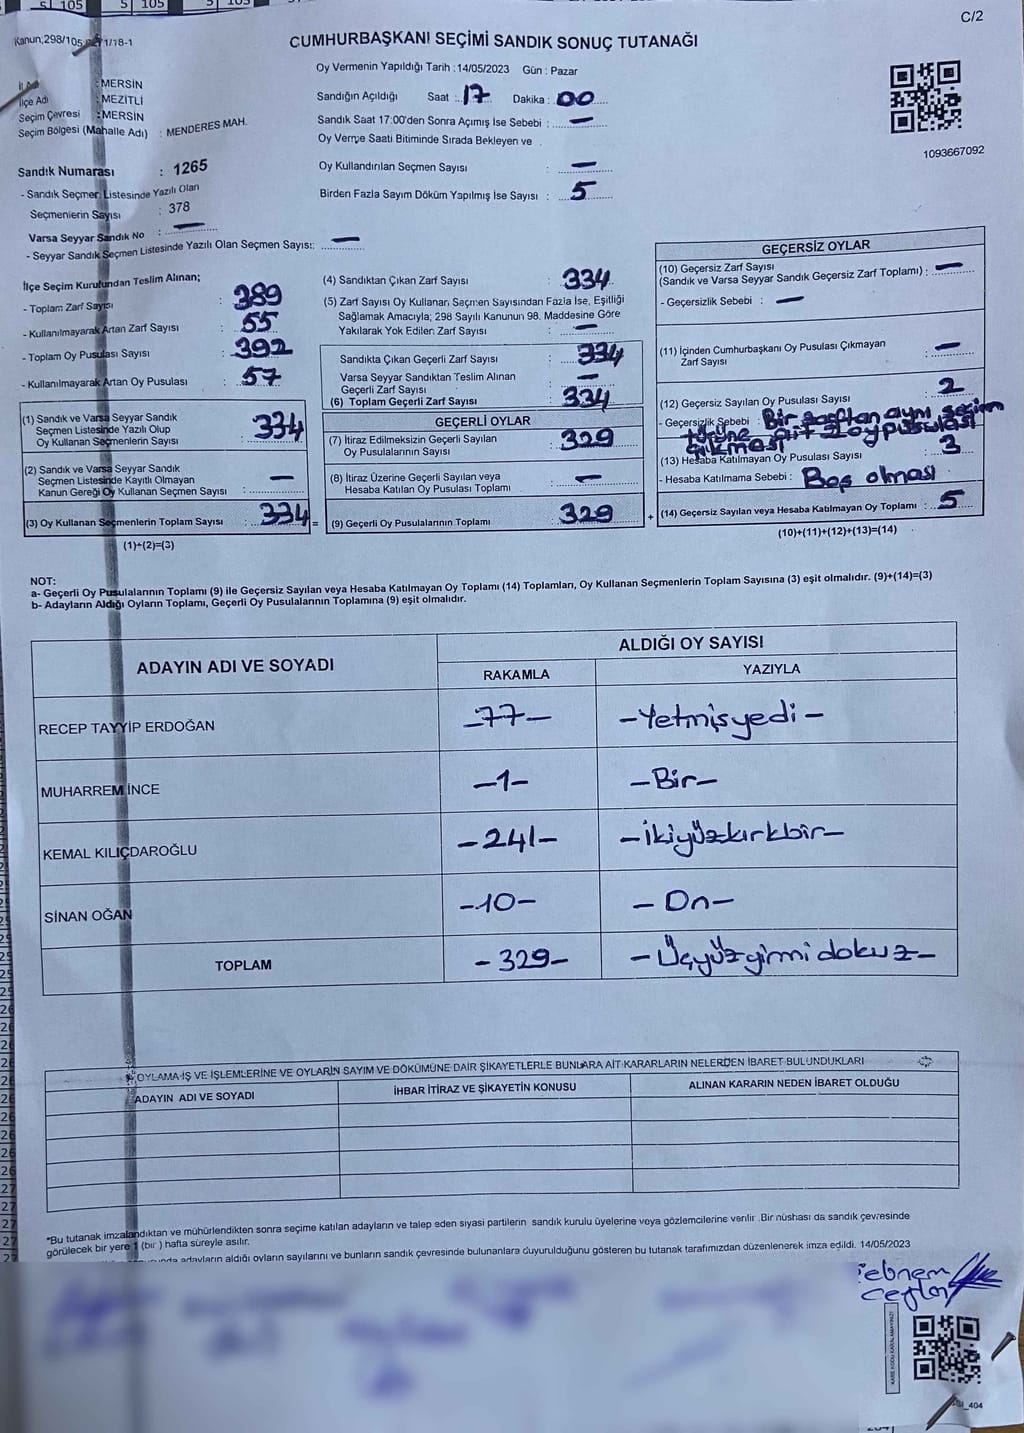 5 105 5 105 5 105
C/2
Kanun;298/105
CUMHURBAŞKANI SEÇİMİ SANDIK SONUÇ TUTANAĞI
Oy Vermenin Yapıldığı Tarih : 14/05/2023 Gün : Pazar
Sandığın Açıldığı Saat : 17 Dakika : 00
Sandık Saat 17:00'den Sonra Açımış İse Sebebi : —
Oy Verme Saati Bitiminde Sırada Bekleyen ve
Oy Kullandırılan Seçmen Sayısı : —
Birden Fazla Sayım Döküm Yapılmış İse Sayısı : 5
: MERSİN
İlçe Adı : MEZİTLİ
Seçim Çevresi : MERSİN
Seçim Bölgesi (Mahalle Adı) : MENDERES MAH.
1093667092
Sandık Numarası : 1265
- Sandık Seçmen Listesinde Yazılı Olan
Seçmenlerin Sayısı : 378
Varsa Seyyar Sandık No : —
- Seyyar Sandık Seçmen Listesinde Yazılı Olan Seçmen Sayısı: —
İlçe Seçim Kurulundan Teslim Alınan;
- Toplam Zarf Sayısı : 389
- Kullanılmayarak Artan Zarf Sayısı : 55
- Toplam Oy Pusulası Sayısı : 392
- Kullanılmayarak Artan Oy Pusulası : 57
(1) Sandık ve Varsa Seyyar Sandık
Seçmen Listesinde Yazılı Olup
Oy Kullanan Seçmenlerin Sayısı : 334
(2) Sandık ve Varsa Seyyar Sandık
Seçmen Listesinde Kayıtlı Olmayan
Kanun Gereği Oy Kullanan Seçmen Sayısı : —
(3) Oy Kullanan Seçmenlerin Toplam Sayısı : 334 =
(1)+(2)=(3)
(4) Sandıktan Çıkan Zarf Sayısı : 334
(5) Zarf Sayısı Oy Kullanan Seçmen Sayısından Fazla İse, Eşitliği
Sağlamak Amacıyla; 298 Sayılı Kanunun 98. Maddesine Göre
Yakılarak Yok Edilen Zarf Sayısı : —
Sandıkta Çıkan Geçerli Zarf Sayısı : 334
Varsa Seyyar Sandıktan Teslim Alınan
Geçerli Zarf Sayısı : —
(6) Toplam Geçerli Zarf Sayısı : 334
GEÇERLİ OYLAR
(7) İtiraz Edilmeksizin Geçerli Sayılan
Oy Pusulalarının Sayısı : 329
(8) İtiraz Üzerine Geçerli Sayılan veya
Hesaba Katılan Oy Pusulası Toplamı : —
(9) Geçerli Oy Pusulalarının Toplamı : 329 +
GEÇERSİZ OYLAR
(10) Geçersiz Zarf Sayısı
(Sandık ve Varsa Seyyar Sandık Geçersiz Zarf Toplamı) : —
- Geçersizlik Sebebi : —
(11) İçinden Cumhurbaşkanı Oy Pusulası Çıkmayan
Zarf Sayısı : —
(12) Geçersiz Sayılan Oy Pusulası Sayısı : 2
- Geçersizlik Sebebi : Bir zarftan aynı seçim
türüne ait 2 oy pusulası
çıkması
(13) Hesaba Katılmayan Oy Pusulası Sayısı : 3
- Hesaba Katılmama Sebebi : Boş olması
(14) Geçersiz Sayılan veya Hesaba Katılmayan Oy Toplamı : 5
(10)+(11)+(12)+(13)=(14)
NOT:
a- Geçerli Oy Pusulalarının Toplamı (9) ile Geçersiz Sayılan veya Hesaba Katılmayan Oy Toplamı (14) Toplamları, Oy Kullanan Seçmenlerin Toplam Sayısına (3) eşit olmalıdır. (9)+(14)=(3)
b- Adayların Aldığı Oyların Toplamı, Geçerli Oy Pusulalarının Toplamına (9) eşit olmalıdır.
ADAYIN ADI VE SOYADI ALDIĞI OY SAYISI
RAKAMLA YAZIYLA
RECEP TAYYİP ERDOĞAN -77- -Yetmişyedi-
MUHARREM İNCE -1- -Bir-
KEMAL KILIÇDAROĞLU -241- -İkiyüzkırkbir-
SİNAN OĞAN -10- -On-
TOPLAM -329- -Üçyüzyirmidokuz-
OYLAMA İŞ VE İŞLEMLERİNE VE OYLARIN SAYIM VE DÖKÜMÜNE DAİR ŞİKAYETLERLE BUNLARA AİT KARARLARIN NELERDEN İBARET BULUNDUKLARI
ADAYIN ADI VE SOYADI İHBAR İTİRAZ VE ŞİKAYETİN KONUSU ALINAN KARARIN NEDEN İBARET OLDUĞU
*Bu tutanak imzalandıktan ve mühürlendikten sonra seçime katılan adayların ve talep eden siyasi partilerin sandık kurulu üyelerine veya gözlemcilerine verilir. Bir nüshası da sandık çevresinde
görülecek bir yere 1 (bir) hafta süreyle asılır.
adayların aldığı oyların sayılarını ve bunların sandık çevresinde bulunanlara duyurulduğunu gösteren bu tutanak tarafımızdan düzenlenerek imza edildi. 14/05/2023